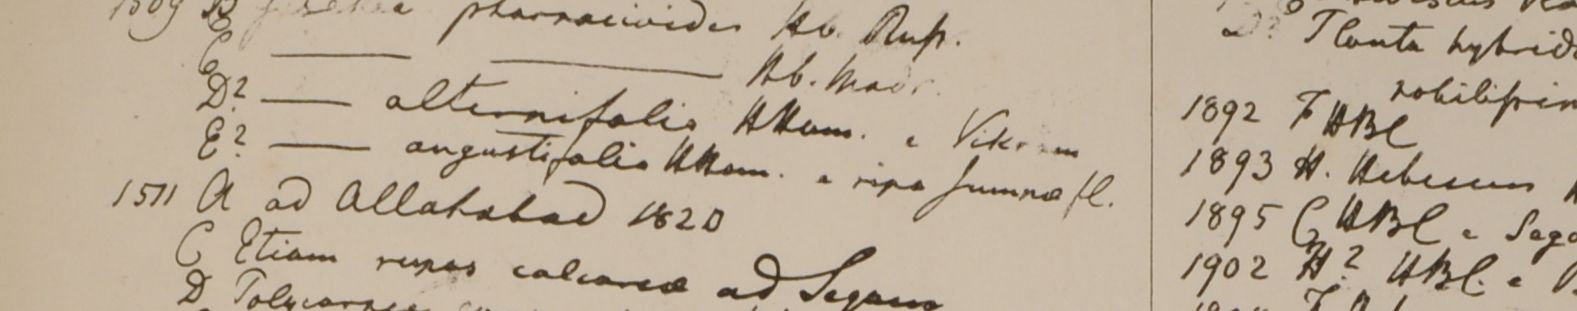 1509 B Giesekia pharnacioides Hb. Rup.
C —— —— Hb. Madr.
D? —— alternifolia HHam. e Vikram
E? —— angustifolia HHam. e ripa Jumnae fl.
1511 A ad Allahabad 1820
C Etiam rupes calcareae ad Segaen
D Polycarpaea
D? Planta hybrida
nobilissima
1892 F HBC
1893 H. Hibiscus
1895 G HBC e Sego
1902 H? HBC. e